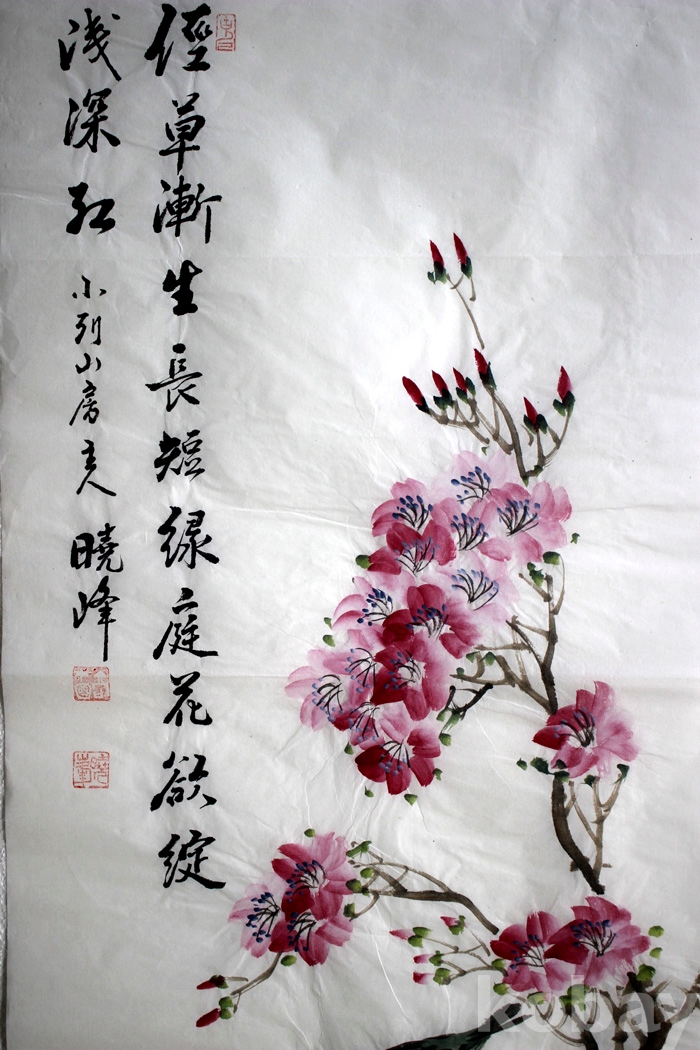 徑草漸生長短綠庭花欲綻
淺深紅
小列山房主人
曉峰
kobay